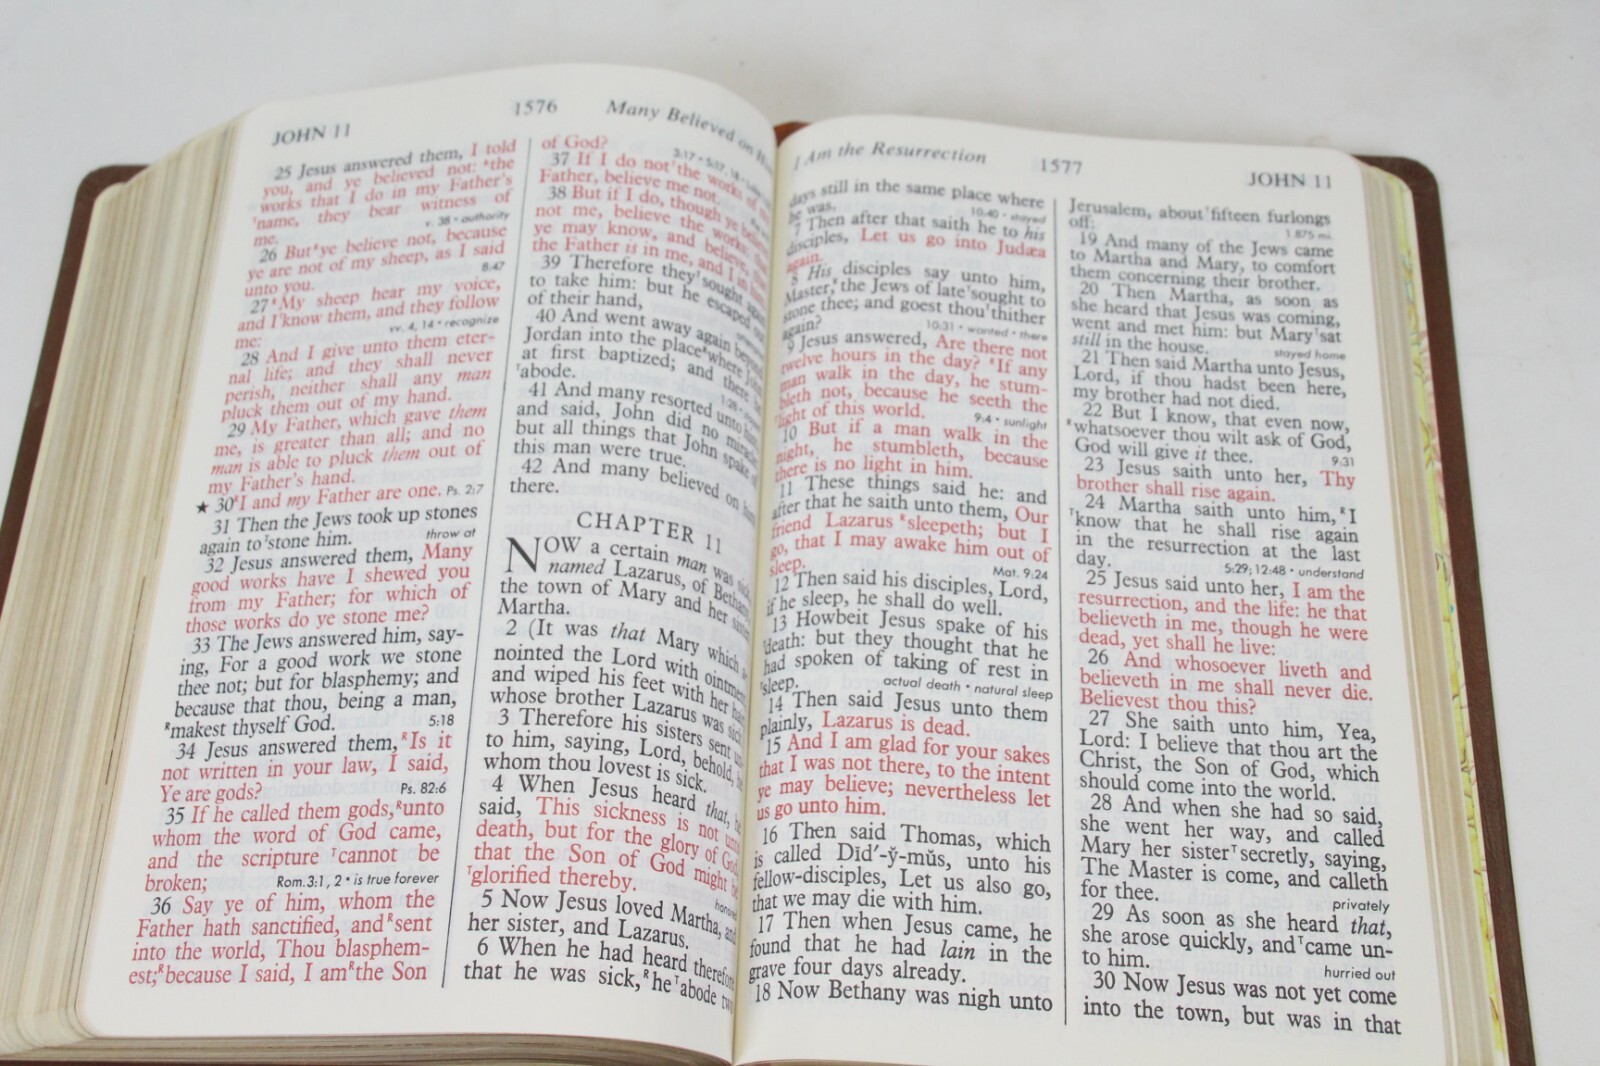 JOHN 11
1576
Many Believed on
25 Jesus answered them, I told
you, and ye believed not: ᴿthe
works that I do in my Father's
ᵀname, they bear witness of
me.
v. 38 • authority
26 But ᴿye believe not, because
ye are not of my sheep, as I said
unto you.
8:47
27 ᴿMy sheep hear my voice,
and I ᵀknow them, and they follow
me:
vv. 4, 14 • recognize
28 And I give unto them eter-
nal life; and they shall never
perish, neither shall any man
pluck them out of my hand.
29 My Father, which gave them
me, is greater than all; and no
man is able to pluck them out of
my Father's hand.
★ 30 ᴿI and my Father are one. Ps. 2:7
31 Then the Jews took up stones
again to ᵀstone him.
throw at
32 Jesus answered them, Many
good works have I shewed you
from my Father; for which of
those works do ye stone me?
33 The Jews answered him, say-
ing, For a good work we stone
thee not; but for blasphemy; and
because that thou, being a man,
ᴿmakest thyself God. 5:18
34 Jesus answered them, ᴿIs it
not written in your law, I said,
Ye are gods? Ps. 82:6
35 If he called them gods, ᴿunto
whom the word of God came,
and the scripture ᵀcannot be
broken; Rom. 3:1, 2 • is true forever
36 Say ye of him, whom the
Father hath sanctified, and ᴿsent
into the world, Thou blasphem-
est; ᴿbecause I said, I am ᴿthe Son
of God?
3:17 • 5:17, 18
37 If I do not ᵀthe works of my
Father, believe me not.
38 But if I do, though ye believe
not me, believe the works: that
ye may know, and believe, that
the Father is in me, and I in him.
39 Therefore they ᵀsought again
to take him: but he escaped out
of their hand,
40 And went away again beyond
Jordan into the place ᴿwhere John
at first baptized; and there he
ᵀabode.
1:28
41 And many resorted unto him,
and said, John did no miracle:
but all things that John spake of
this man were true.
42 And many believed on him
there.
CHAPTER 11
NOW a certain man was sick,
named Lazarus, of Bethany,
the town of Mary and her sister
Martha.
2 (It was that Mary which a-
nointed the Lord with ointment,
and wiped his feet with her hair,
whose brother Lazarus was sick.)
3 Therefore his sisters sent un-
to him, saying, Lord, behold, he
whom thou lovest is sick.
4 When Jesus heard that, he
said, This sickness is not unto
death, but for the glory of God,
that the Son of God might be
ᵀglorified thereby.
honored
5 Now Jesus loved Martha, and
her sister, and Lazarus.
6 When he had heard therefore
that he was sick, ᴿhe ᵀabode two
I Am the Resurrection
1577
JOHN 11
days still in the same place where
he was.
10:40 • stayed
7 Then after that saith he to his
disciples, Let us go into Judæa
again.
8 His disciples say unto him,
Master, ᴿthe Jews of late ᵀsought to
stone thee; and goest thou ᵀthither
again?
10:31 • wanted • there
9 Jesus answered, Are there not
twelve hours in the day? ᴿIf any
man walk in the day, he stum-
bleth not, because he seeth the
ᵀlight of this world.
9:4 • sunlight
10 But if a man walk in the
night, he stumbleth, because
there is no light in him.
11 These things said he: and
after that he saith unto them, Our
friend Lazarus ᴿsleepeth; but I
go, that I may awake him out of
sleep.
Mat. 9:24
12 Then said his disciples, Lord,
if he sleep, he shall do well.
13 Howbeit Jesus spake of his
ᵀdeath: but they thought that he
had spoken of taking of rest in
ᵀsleep.
actual death • natural sleep
14 Then said Jesus unto them
plainly, Lazarus is dead.
15 And I am glad for your sakes
that I was not there, to the intent
ye may believe; nevertheless let
us go unto him.
16 Then said Thomas, which
is called Dĭd′-ў-mŭs, unto his
fellow-disciples, Let us also go,
that we may die with him.
17 Then when Jesus came, he
found that he had lain in the
grave four days already.
18 Now Bethany was nigh unto
Jerusalem, about ᵀfifteen furlongs
off:
1.875 mi.
19 And many of the Jews came
to Martha and Mary, to comfort
them concerning their brother.
20 Then Martha, as soon as
she heard that Jesus was coming,
went and met him: but Mary ᵀsat
still in the house.
stayed home
21 Then said Martha unto Jesus,
Lord, if thou hadst been here,
my brother had not died.
22 But I know, that even now,
ᴿwhatsoever thou wilt ask of God,
God will give it thee. 9:31
23 Jesus saith unto her, Thy
brother shall rise again.
24 Martha saith unto him, ᴿI
ᵀknow that he shall rise again
in the resurrection at the last
day.
5:29; 12:48 • understand
25 Jesus said unto her, I am the
resurrection, and the life: he that
believeth in me, though he were
dead, yet shall he live:
26 And whosoever liveth and
believeth in me shall never die.
Believest thou this?
27 She saith unto him, Yea,
Lord: I believe that thou art the
Christ, the Son of God, which
should come into the world.
28 And when she had so said,
she went her way, and called
Mary her sister ᵀsecretly, saying,
The Master is come, and calleth
for thee.
privately
29 As soon as she heard that,
she arose quickly, and ᵀcame un-
to him.
hurried out
30 Now Jesus was not yet come
into the town, but was in that